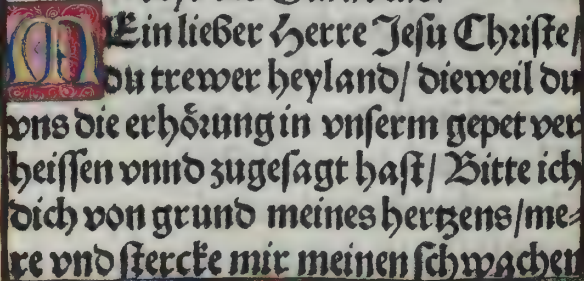 MEin lieber Herre Jesu Christe/
du trewer heyland/ dieweil du
vns die erhörung in vnserm gepet ver
heissen vnnd zugesagt hast/ Bitte ich
dich von grund meines hertzens/ me⸗
re vnd stercke mir meinen schwachen